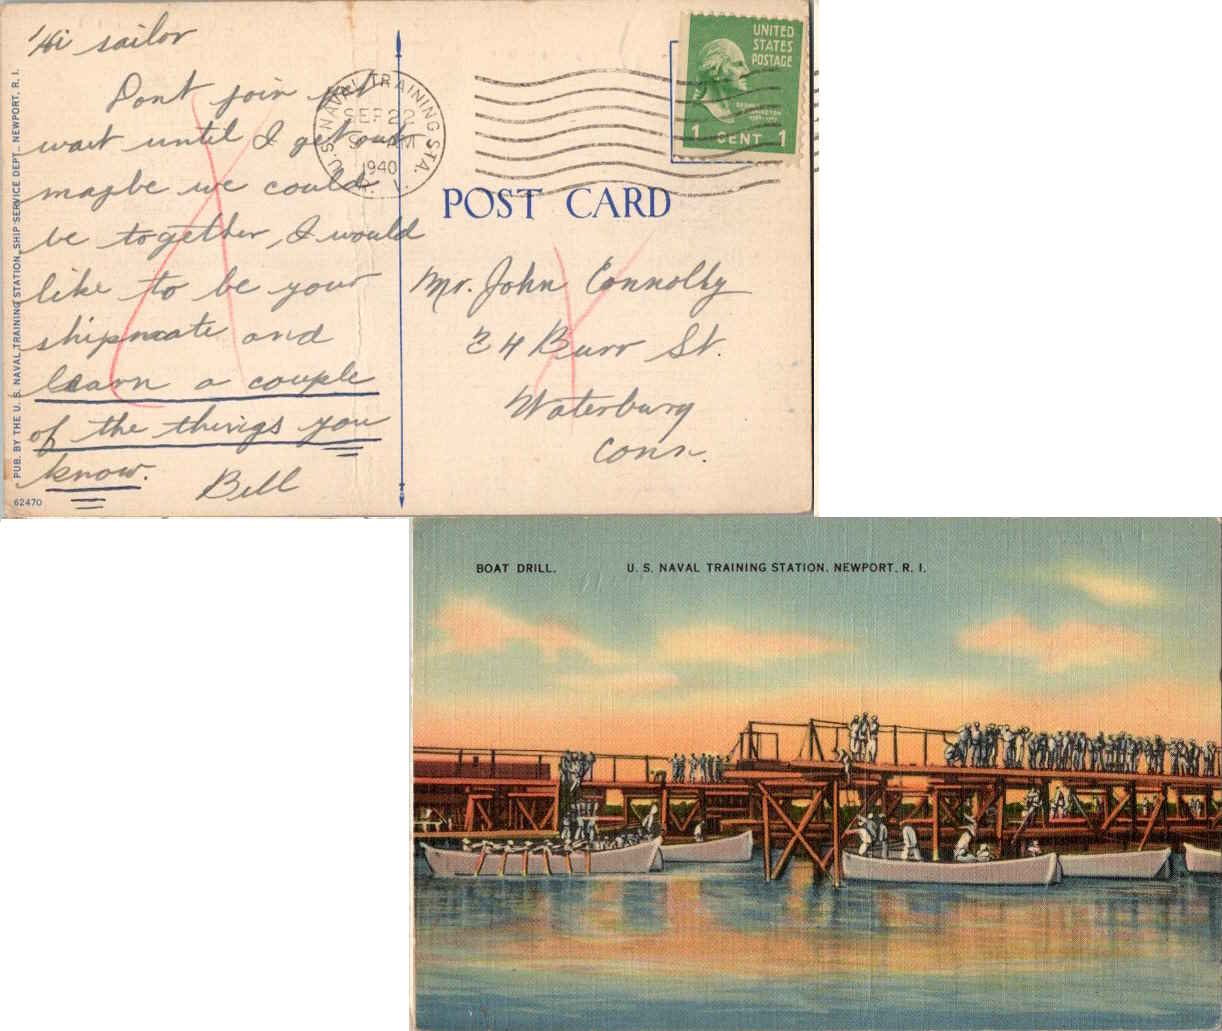 Hi sailor
Dont join yet
wait until I get out
maybe we could
be together, I would
like to be your
shipmate and
learn a couple
of the things you
know.
Bill
PUB. BY THE U. S. NAVAL TRAINING STATION, SHIP SERVICE DEPT., NEWPORT, R. I.
62470
U.S. NAVAL TRAINING STA.
SEP 20
9 AM
1940
R. I.
UNITED
STATES
POSTAGE
GEORGE
WASHINGTON
1 CENT 1
POST CARD
Mr. John Connolly
24 Burr St.
Waterbury
Conn.
BOAT DRILL. U. S. NAVAL TRAINING STATION, NEWPORT, R. I.